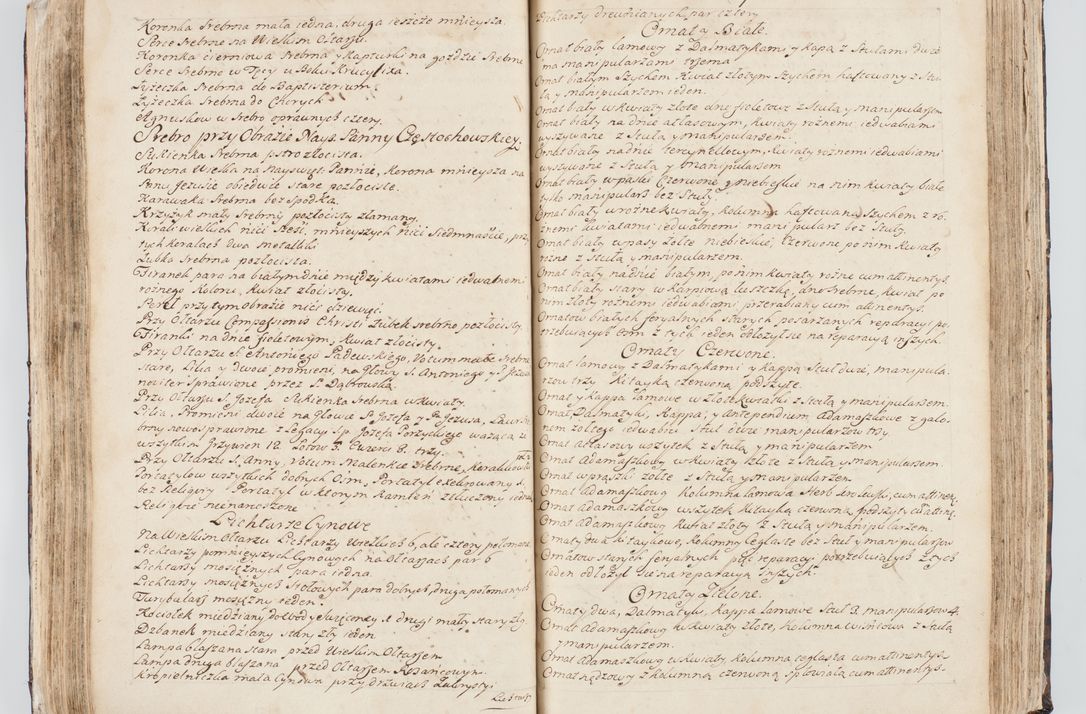 Koronka srebrna mała iedna, druga ieszcze mnieysza.
Serce srebrne na Wielkim Ołtarzu.
Koronka cierniowa srebrna y Kapturki na gozdzie srebrne
Serce srebrne w Tęcy u Boku Krucyfixa.
Łyżeczka srebrna do Baptisterium.
Łyżeczka srebrna do Chorych
Agnusków w srebro oprawnych cztery.
Srebro przy Obrazie Nayś. Panny Częstochowskiey.
Sukienka srebrna pstro złocista.
Korona Wielka na Nayświęt: Pannie, Korona mnieysza na
Panu Jezusie obiedwie stare pozłociste.
Kanawka srebrna bez spodka.
Krzyżyk mały srebrny pozłocisty złamany.
Korali wielkich nici sześć, mnieyszych nici siedmnaście, przy
tych koralach dwa metalliki
Żabka srebrna pozłocista.
Firanek para na białym dnie między kwiatami iedwabnemi
rożnego koloru, kwiat złocisty.
Pereł przy tym obrazie nici dziewięć.
Przy Ołtarzu Compassionis Christi Żubek srebrno pozłocisty
Firanki na dnie fioletowym, kwiat złocisty
Przy Ołtarzu S. Antoniego Padewskiego, Votum małe srebrne
stare, Lilia y dwoie promieni, na głowy S. Antoniego y P. Jezusa
noviter sprawione przez P. Dąbrowską.
Przy Ołtarzu S. Jozefa Sukienka srebrna w kwiaty.
Lilia, Promieni dwoie na głowie S. Jozefa y P. Jezusa, Laur sre-
brny nowo sprawione z Legacyi Sp. Jozefa Porzyckiego ważąca ze
wszytkim Grzywien 12. Łotow 3.
Przy Ołtarzu S. Anny, Votum maleńkie srebrne, Koralikow
Portatylow wszytkich dobrych Portatyl exekrowany
bez Religiry Portatyl w ktorym Kamień ztłuczony ieden
Religiae nienaruszone
Lichtarze Cynowe
Na Wielkim Ołtarzu Lichtarzy Wielkich 6, ale cztery połamane
Lichtarzy pomnieyszych Cynowych na Ołtarzach par 6
Lichtarzy mosiężnych para iedna.
Lichtarzy mosiężnych stołowych para dobrych, druga połamanych
Turybularz mosiężny ieden.
Kociołek miedziany do wody święconey, drugi mały stary zły.
Dzbanek miedziany stary zły ieden.
Lampa blaszana stara przed Wielkim Ołtarzem
Lampa druga blaszana przed Ołtarzem Rożańcowym.
Kropielniczka mała Cynowa przy drzwiach Zakrystyi
Lichtarzy
Lichtarzy drewnianych par cztery
Ornaty Białe.
Ornat biały lamowy z Dalmatykami y kapą z Stułami dwie-
ma manipularzami trzema
Ornat białym szychem kwiat złotym szychem haftowany z Stu-
łą y manipularzem ieden.
Ornat biały w kwiaty złote dno fioletowe z Stułą y manipularzem
Ornat biały na dnie atłasowym, kwiaty rożnemi iedwabiami
wyszywane z Stułą y manipularzem
Ornat biały na dnie tercynellowym, kwiaty rożnemi iedwabiami
wyszywane z Stułą y manipularzem
Ornat biały w paski czerwone y niebieskie na nim kwiaty białe
tylko manipularz bez Stuły.
Ornat biały w rożne kwiaty, kolumna haftowana szychem z ro-
żnemi kwiatami iedwabnemi manipularz bez Stuły.
Ornat biały w pasy żołte niebieskie, czerwone po nim kwiaty
rożne z Stułą y manipularzem.
Ornat biały na dnie białym, po nim kwiaty rożne cum attinentys.
Ornat biały stary w karpiową łuszczkę, dno srebrne, kwiat po
nim złoty rożnemi iedwabiami przerabiany cum attinentys.
Ornatow białych feryalnych starych poszarzanych reparacyi po-
trzebuiących z tych ieden obłożył się na reparacyą inszych.
Ornaty Czerwone.
Ornat lamowy z Dalmatykami y kappą Stuł dwie, manipula-
rzow trzy kitayką czerwoną podszyte.
Ornat y kappa lamowe w złote kwiatki z Stułą y manipularzem.
Ornat, Dalmatyki, kappa, y antependium adamaszkowe z galo-
nem żołtego iedwabiu Stuł dwie manipularzow trzy
Ornat atłasowy wszytek z Stułą y manipularzem
Ornat adamaszkowy w kwiaty złote z Stułą y manipularzem.
Ornat w prążki żołte z Stułą y manipularzem
Ornat adamaszkowy kolumna lamowa Herb cum attinen.
Ornat adamaszkowy wszytek kitayką czerwoną podszyty cum attinen.
Ornat adamaszkowy kwiat złoty z Stułą y manipularzem.
Ornaty kitaykowe, kolumny ceglaste bez Stuł y manipularzow
Ornatow starych feryalnych reparacyi potrzebuiących z tych
ieden odłożył się na reparacyą inszych.
Ornaty Zielone.
Ornaty dwa, Dalmatyki, kappa lamowe Stuł 3. manipularzow 4.
Ornat adamaszkowy w kwiaty złote, kolumna wiśniowa z Stułą
y manipularzem.
Ornat adamaszkowy w kwiaty kolumna ceglasta cum attinentys.
Ornat z kolumną czerwoną spłowiałą cum attinentys.